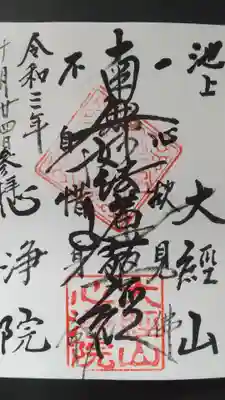 池上
大經山
一心欲見佛
南無妙法蓮華経
不自惜身命
心浄院
令和三年
十月廿四日参拝